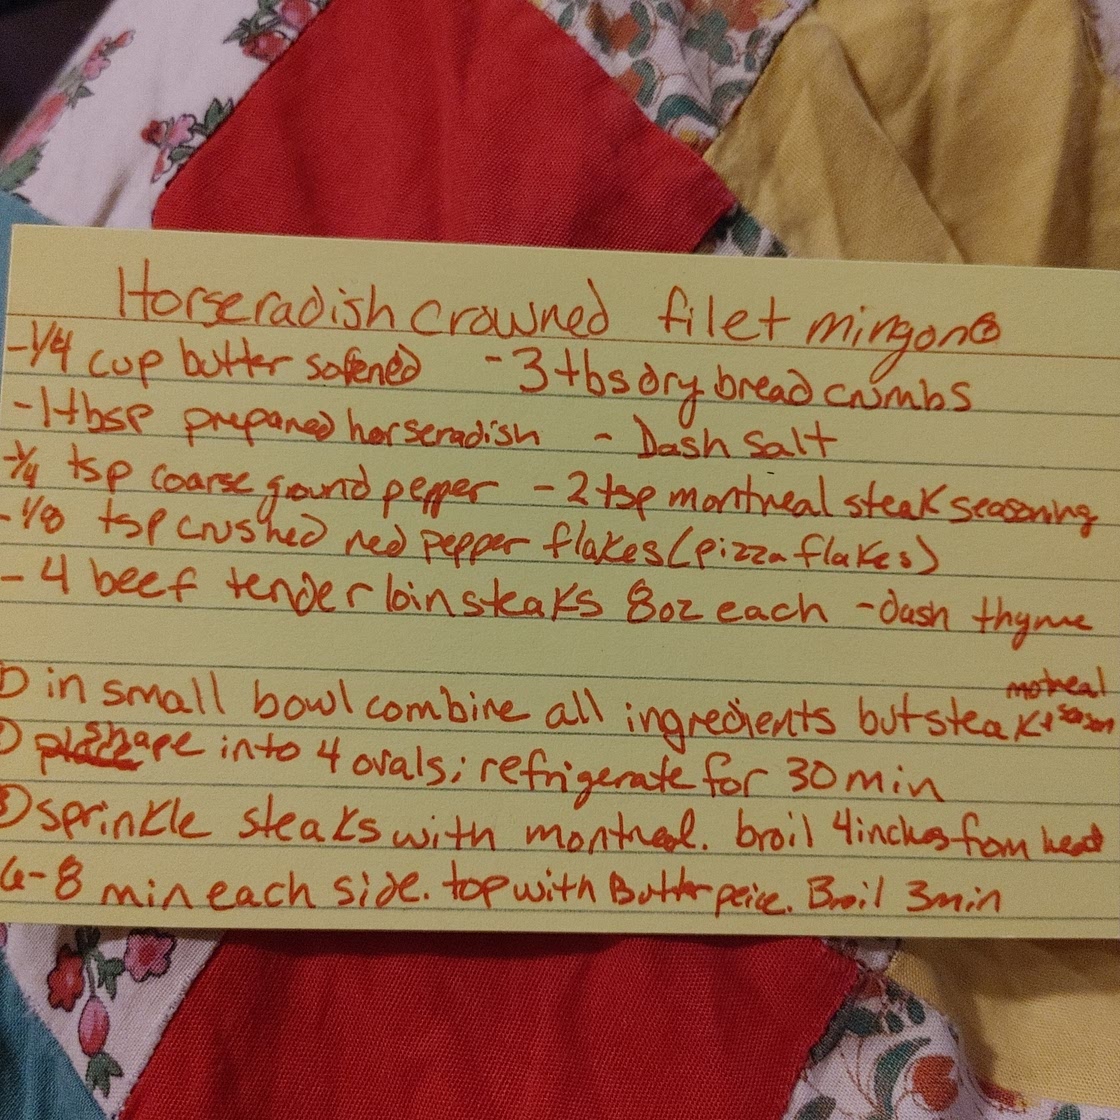 Horseradish crowned filet mingon
-1/4 cup butter softened -3 tbs dry bread crumbs
-1 tbsp prepared horseradish - Dash salt
-1/4 tsp coarse ground pepper -2 tsp montreal steak seasoning
-1/8 tsp crushed red pepper flakes (pizza flakes)
-4 beef tenderloin steaks 8oz each -dash thyme
① in small bowl combine all ingredients but steak + motreal
shape into 4 ovals; refrigerate for 30 min
③ sprinkle steaks with montreal. broil 4 inches from heat
6-8 min each side. top with Butter peice. Broil 3 min